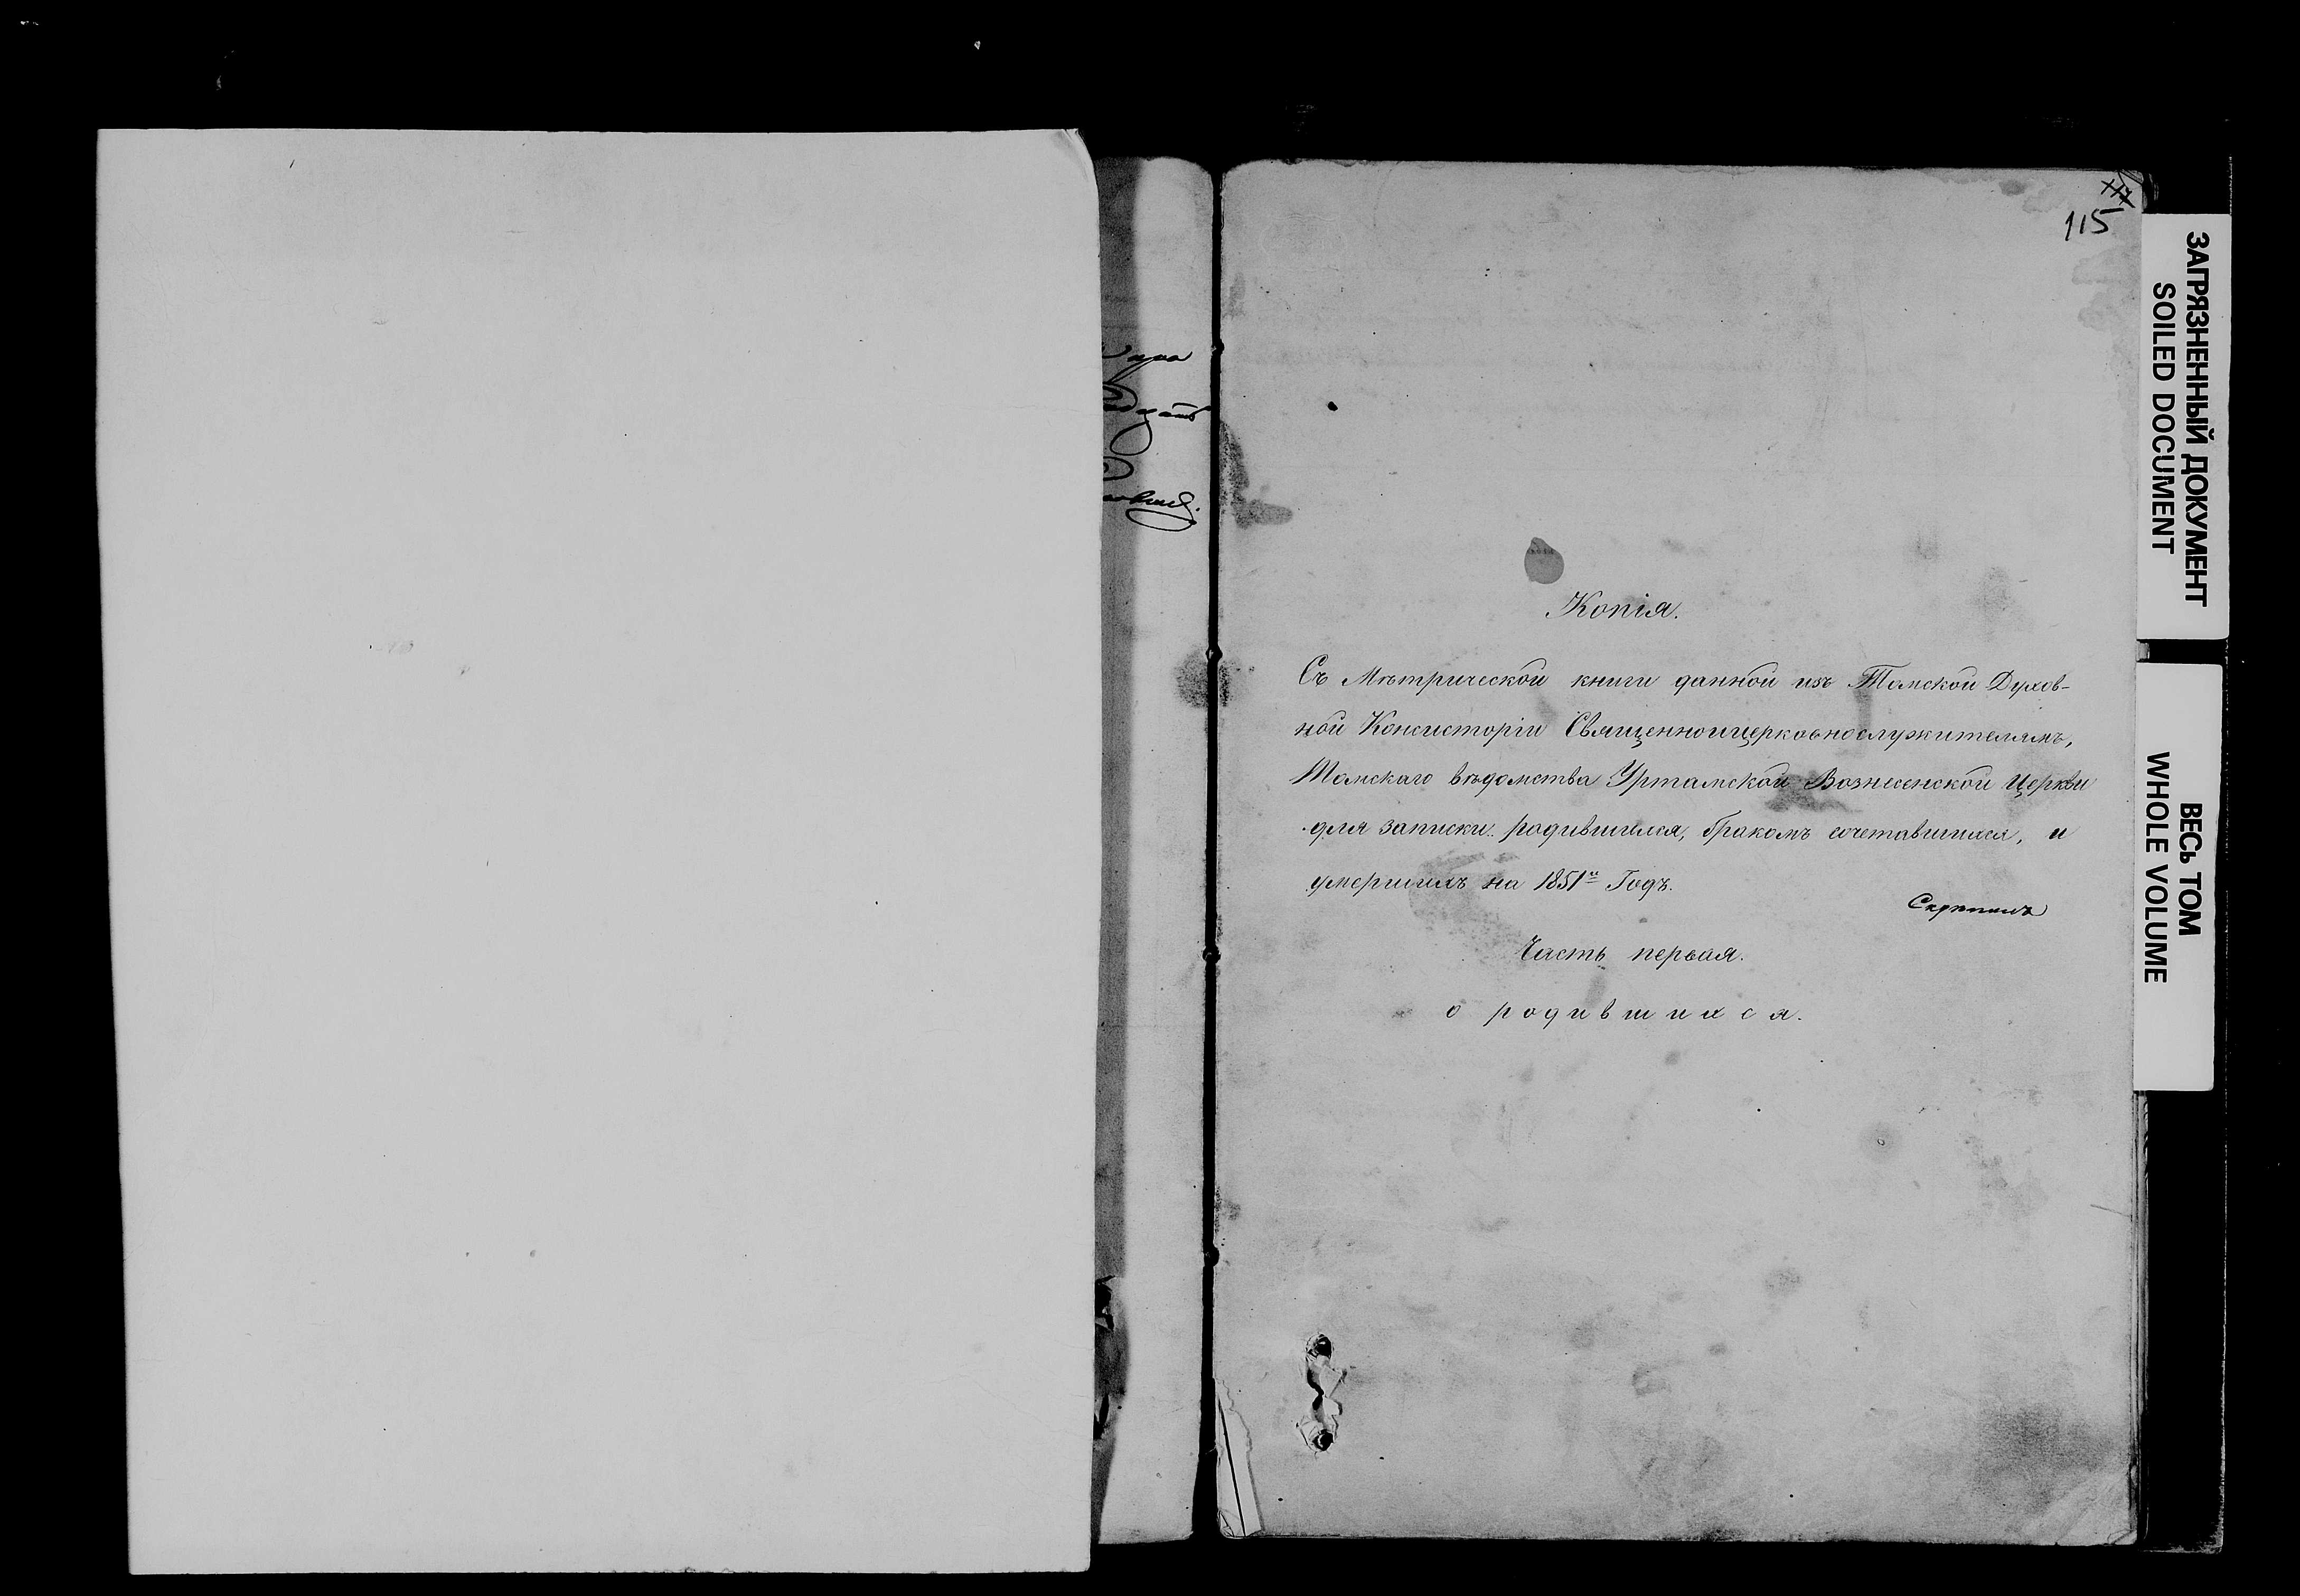 115
Копія.
Съ Мѣтрической книги данной изъ Томской Духов-
ной Консисторіи Священноицерковнослужителямъ,
Томскаго вѣдомства Уртамской Вознесенской Церкви
для записки родившихся, бракомъ сочетавшихся, и
умершихъ на 1851й Годъ.
Часть первая.
о родившихся.
ЗАГРЯЗНЕННЫЙ ДОКУМЕНТ
SOILED DOCUMENT
ВЕСЬ ТОМ
WHOLE VOLUME